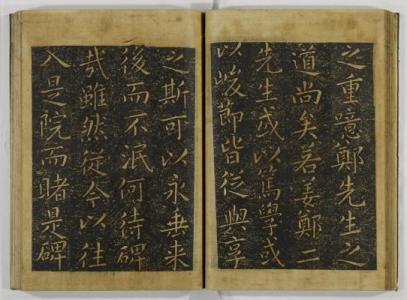 之重噫鄭先生之
道尚矣若姜鄭二
先生或以篤學或
以峻節皆從與享
之斯可以永垂来
後而不泯何待碑
哉雖然從今以往
入是院而睹是碑